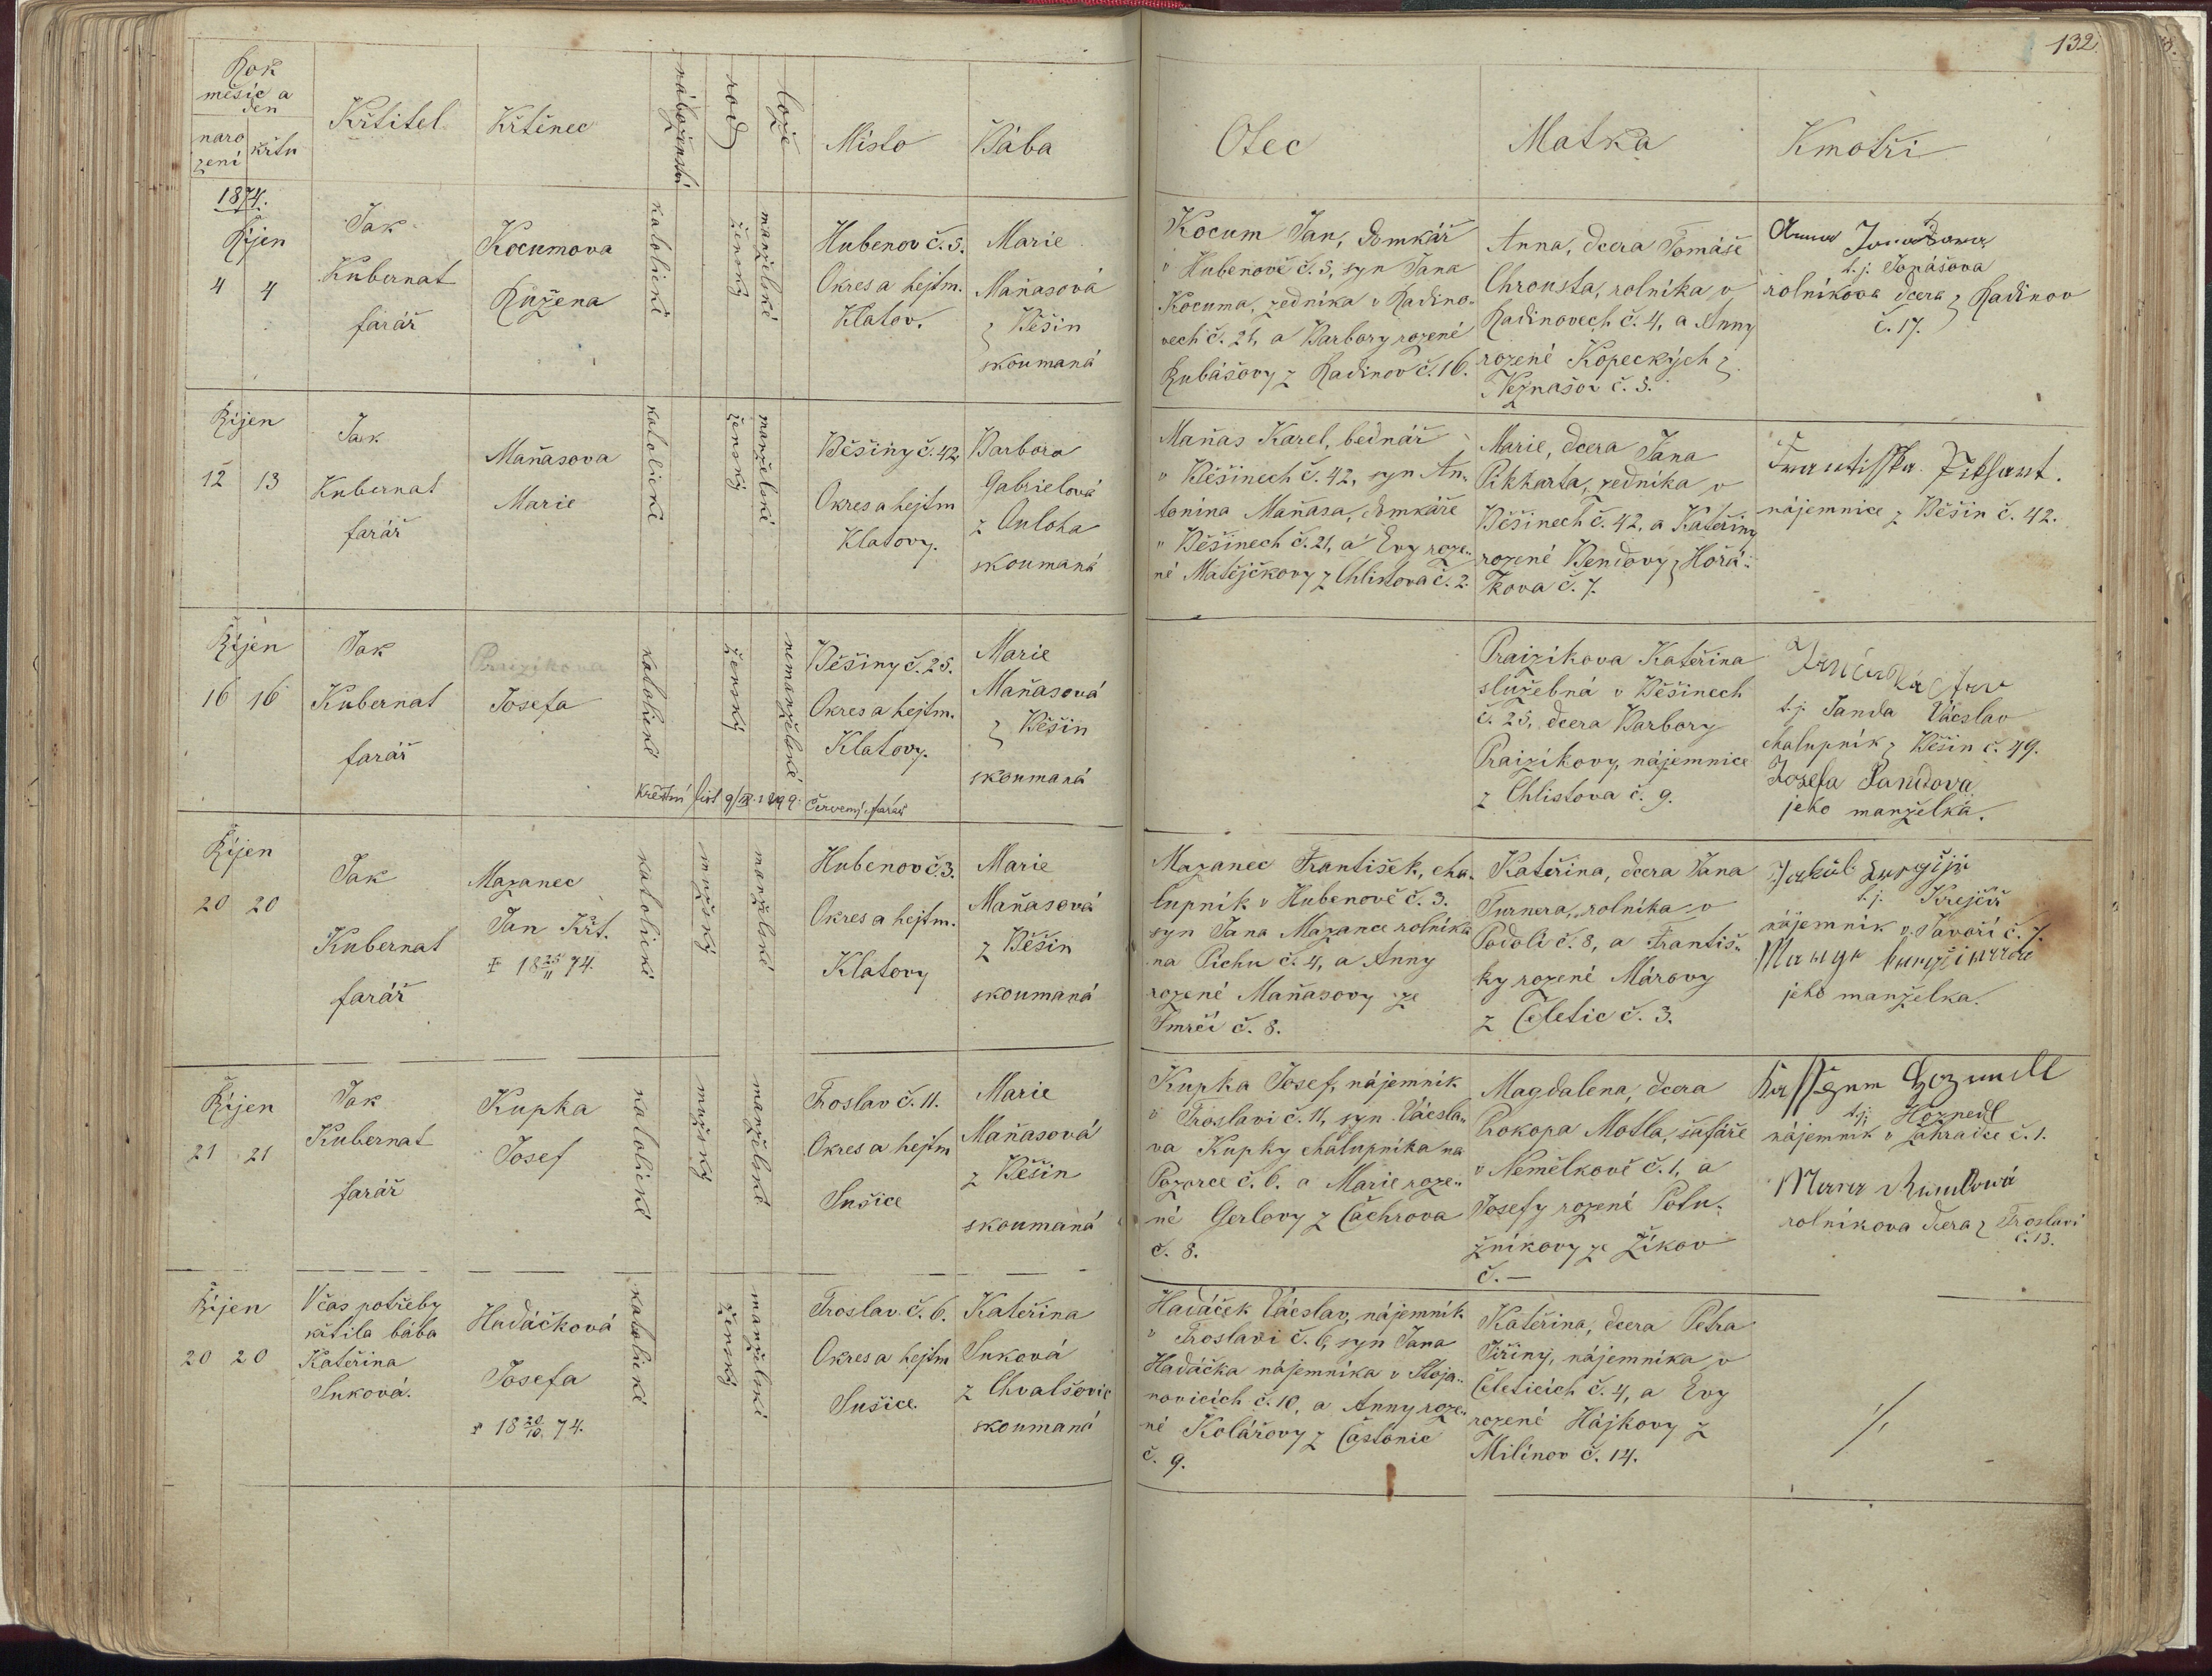 132.
Rok
měsíc a
den
naro
zení
křtu
Křtitel
Křtěnec
náboženství
rod
lože
Místo
Bába
Otec
Matka
Kmotři
1874.
Říjen
4 4
Jak
Kubernat
farář
Kocumova
Růžena
katolické
ženský
manželské
Hubenov č. 5.
Okres a hejtm.
Klatov.
Marie
Maňasová
z Běšin
zkoumaná
Kocum Jan, domkář
v Hubenově č. 5, syn Jana
Kocuma, zedníka v Radino-
vech č. 21, a Barbory rozené
Kubášovy z Radinov č. 16.
Anna, dcera Tomáše
Chrousta, rolníka v
Radinovech č. 4, a Anny
rozené Kopeckých z
Neznašov č. 3.
Anna
t. j. Tomášova
rolníkova dcera z Radinov
č. 17.
Říjen
12 13
Jak
Kubernat
farář
Maňasova
Marie
katolické
ženský
manželské
Běšiny č. 42.
Okres a hejtm
Klatovy.
Barbora
Gabrielová
z Ouloha
zkoumaná
Maňas Karel, bednář
v Běšinech č. 42, syn An-
tonína Maňasa, domkáře
v Běšinech č. 21, a Evy roze-
né Matějčkovy z Chlistova č. 2.
Marie, dcera Jana
Pikharta, zedníka v
Běšinech č. 42, a Kateřiny
rozené Bendovy z Hořá-
kova č. 7.
Frantisska
nájemnice z Běšin č. 42.
Říjen
16 16
Jak
Kubernat
farář
Praizikova
Josefa
katolické
ženský
nemanželské
Křestní list
Červený, farář
Běšiny č. 25.
Okres a hejtm.
Klatovy.
Marie
Maňasová
z Běšin
zkoumaná
Praizikova Kateřina
služebná v Běšinech
č. 25, dcera Barbory
Praizikovy, nájemnice
z Chlistova č. 9.
t. j. Janda Vácslav
chalupník z Běšin č. 49.
Josefa Jandova
jeho manželka.
Říjen
20 20
Jak
Kubernat
farář
Mazanec
Jan Křt.
† 18 25/11 74.
katolické
mužský
manželské
Hubenov č. 3.
Okres a hejtm.
Klatovy
Marie
Maňasová
z Běšin
zkoumaná
Mazanec František, cha-
lupník v Hubenově č. 3.
syn Jana Mazance rolníka
na Píchu č. 4, a Anny
rozené Maňasovy ze
Smrčí č. 8.
Kateřina, dcera Jana
Turnera, rolníka v
Podolí č. 8, a Františ-
ky rozené Márovy
z Čeletic č. 3.
Jakub
t. j. Krejčíř
nájemník v Javoří č. 7.
jeho manželka.
Říjen
21 21
Jak
Kubernat
farář
Kupka
Josef
katolické
mužský
manželské
Froslav č. 11.
Okres a hejtm
Sušice
Marie
Maňasová
z Běšin
zkoumaná
Kupka Josef, nájemník
v Froslavi č. 11, syn Vácsla-
va Kupky chalupníka na
Pozorce č. 6. a Marie roze-
né Gerlovy z Čachrova
č. 8.
Magdalena, dcera
Prokopa Motla, šafáře
v Nemělkově č. 1, a
Josefy rozené Potu-
žníkovy ze Žíkov
č. —
t. j. Hoznedl
nájemník v Zahradce č. 1.
rolníkova dcera z Froslavi
č. 13.
Říjen
20 20
V čas potřeby
křtila bába
Kateřina
Suková.
Hadáčková
Josefa
† 18 20/10 74.
katolické
ženský
manželské
Froslav č. 6.
Okres a hejtm
Sušice.
Kateřina
Suková
z Chvalšovic
zkoumaná
Hadáček Vácslav, nájemník
v Froslavi č. 6, syn Jana
Hadáčka nájemníka v Stoja-
novicích č. 10, a Anny roze-
né Kolářovy z Častonic
č. 9.
Kateřina, dcera Petra
Jiřiny, nájemníka v
Čeleticích č. 4, a Evy
rozené Hájkovy z
Milínov č. 14.